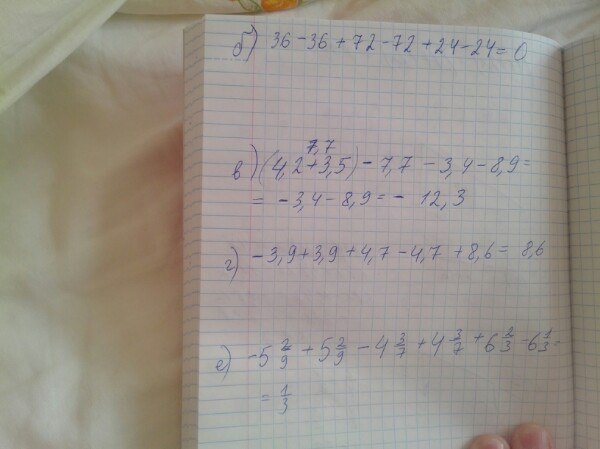 б) 36 - 36 + 72 - 72 + 24 - 24 = 0
7,7
в) (4,2 + 3,5) - 7,7 - 3,4 - 8,9 =
= - 3,4 - 8,9 = - 12,3
г) - 3,9 + 3,9 + 4,7 - 4,7 + 8,6 = 8,6
е) - 5 2/9 + 5 2/9 - 4 3/7 + 4 3/7 + 6 2/3 - 6 1/3 =
= 1/3